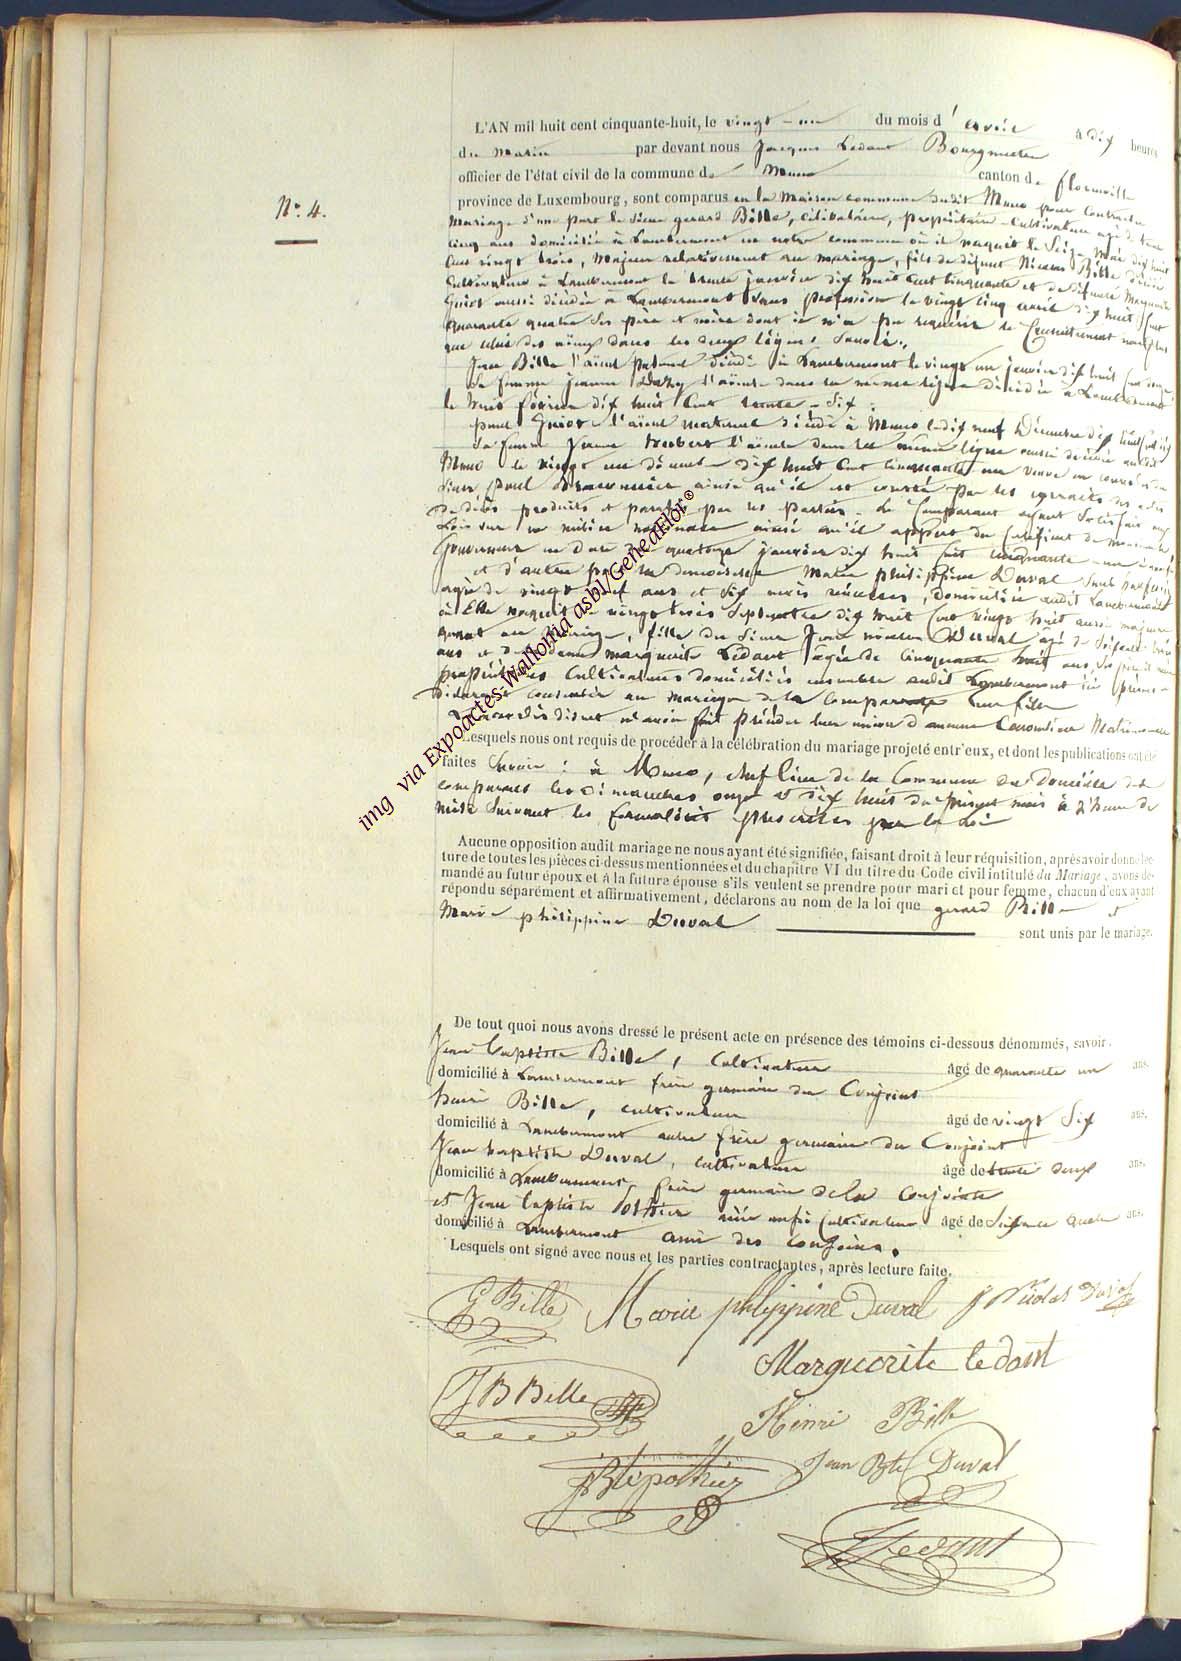 N.° 4.
L'AN mil huit cent cinquante-huit, le vingt-un du mois d'avril à dix heures
du matin par devant nous Jacques Ledant Bourgmestre
officier de l'état civil de la commune de Muno canton de florenville
province de Luxembourg, sont comparus en la maison commune dudit Muno pour contracter
mariage d'une part le sieur gerard Bille, célibataire, propriétaire-cultivateur agé de trente
cinq ans domicilié à Lambermont en notre commune où il naquit le seize mai dix huit
cent vingt trois, majeur relativement au mariage, fils de défunt Nicolas Bille décédé
cultivateur à Lambermont le trente janvier dix huit cent cinquante et de défunte Marguerite
Guiot aussi décédée à Lambermont sans profession le vingt cinq avril dix huit cent
quarante quatre ses père et mère dont il n'a pu requérir le consentement non plus
que celui des aïeux dans les deux lignes savoir.
Jean Bille l'aïeul paternel décédé à Lambermont le vingt un janvier dix huit cent
Sa femme jeanne l'aïeule dans la même ligne décédée à Lambermont
le trois février dix huit cent trente-six.
paul Guiot l'aïeul maternel décédé à Muno le dix neuf Décembre dix huit cent
Sa femme Jeanne hubert l'aïeule dans la même ligne aussi décédée audit
Muno le vingt un dix huit cent cinquante un veuve en
sieur paul ainsi qu'il est constaté par les extraits des actes
de décès produits et paraphés par les parties. Le comparant ayant satisfait aux
Lois sur la milice nationale ainsi qu'il appert du certificat de Monsieur le
Gouverneur en date du quatorze janvier dix huit cent cinquante
et d'autre part la demoiselle Marie philippine Duval sans profession
agée de vingt neuf ans et six mois révolus, domiciliée audit Lambermont
où Elle naquit le vingt trois Septembre dix huit cent vingt huit aussi majeure
quant au mariage, fille du sieur Jean nicolas Duval âgé de soixante trois
ans et de dame marguerite Ledant agée de cinquante huit ans, ses père et mère
propriétaires cultivateurs domiciliés ensemble audit Lambermont ici présents
déclarant consentir au mariage de la comparante leur fille
disent n'avoir fait précéder leur union d'aucune Convention Matrimoniale
Lesquels nous ont requis de procéder à la célébration du mariage projeté entr'eux, et dont les publications ont été
faites savoir : à Muno, chef lieu de la Commune du Domicile des
comparants les Dimanches onze et dix huit du présent mois à l'heure de
midi suivant les formalités prescrites par la loi
Aucune opposition audit mariage ne nous ayant été signifiée, faisant droit à leur réquisition, après avoir donné lec-
ture de toutes les pièces ci-dessus mentionnées et du chapitre VI du titre du Code civil intitulé du Mariage, avons de-
mandé au futur époux et à la future épouse s'ils veulent se prendre pour mari et pour femme, chacun d'eux ayant
répondu séparément et affirmativement, déclarons au nom de la loi que gerard Bille et
Marie philippine Duval
sont unis par le mariage.
De tout quoi nous avons dressé le présent acte en présence des témoins ci-dessous dénommés, savoir.
Jean baptiste Bille, cultivateur âgé de quarante un ans.
domicilié à Lambermont frère germain du Conjoint
henri Bille, cultivateur âgé de vingt six ans.
domicilié à Lambermont autre frère germain du Conjoint
Jean baptiste Duval, cultivateur âgé de trente deux ans.
domicilié à Lambermont frère germain de la conjointe
et Jean baptiste Pothier cultivateur âgé de soixante quatre ans.
domicilié à Lambermont ami des conjoints.
Lesquels ont signé avec nous et les parties contractantes, après lecture faite.
G Bille Marie phlippine Duval J Nicolas Duval
Marguerite ledant
J B Bille
Henri Bille
Jean Bte Duval
JBte pothier
J Ledant
img via Expoactes-Wallonia asbl/GeneaFlor®